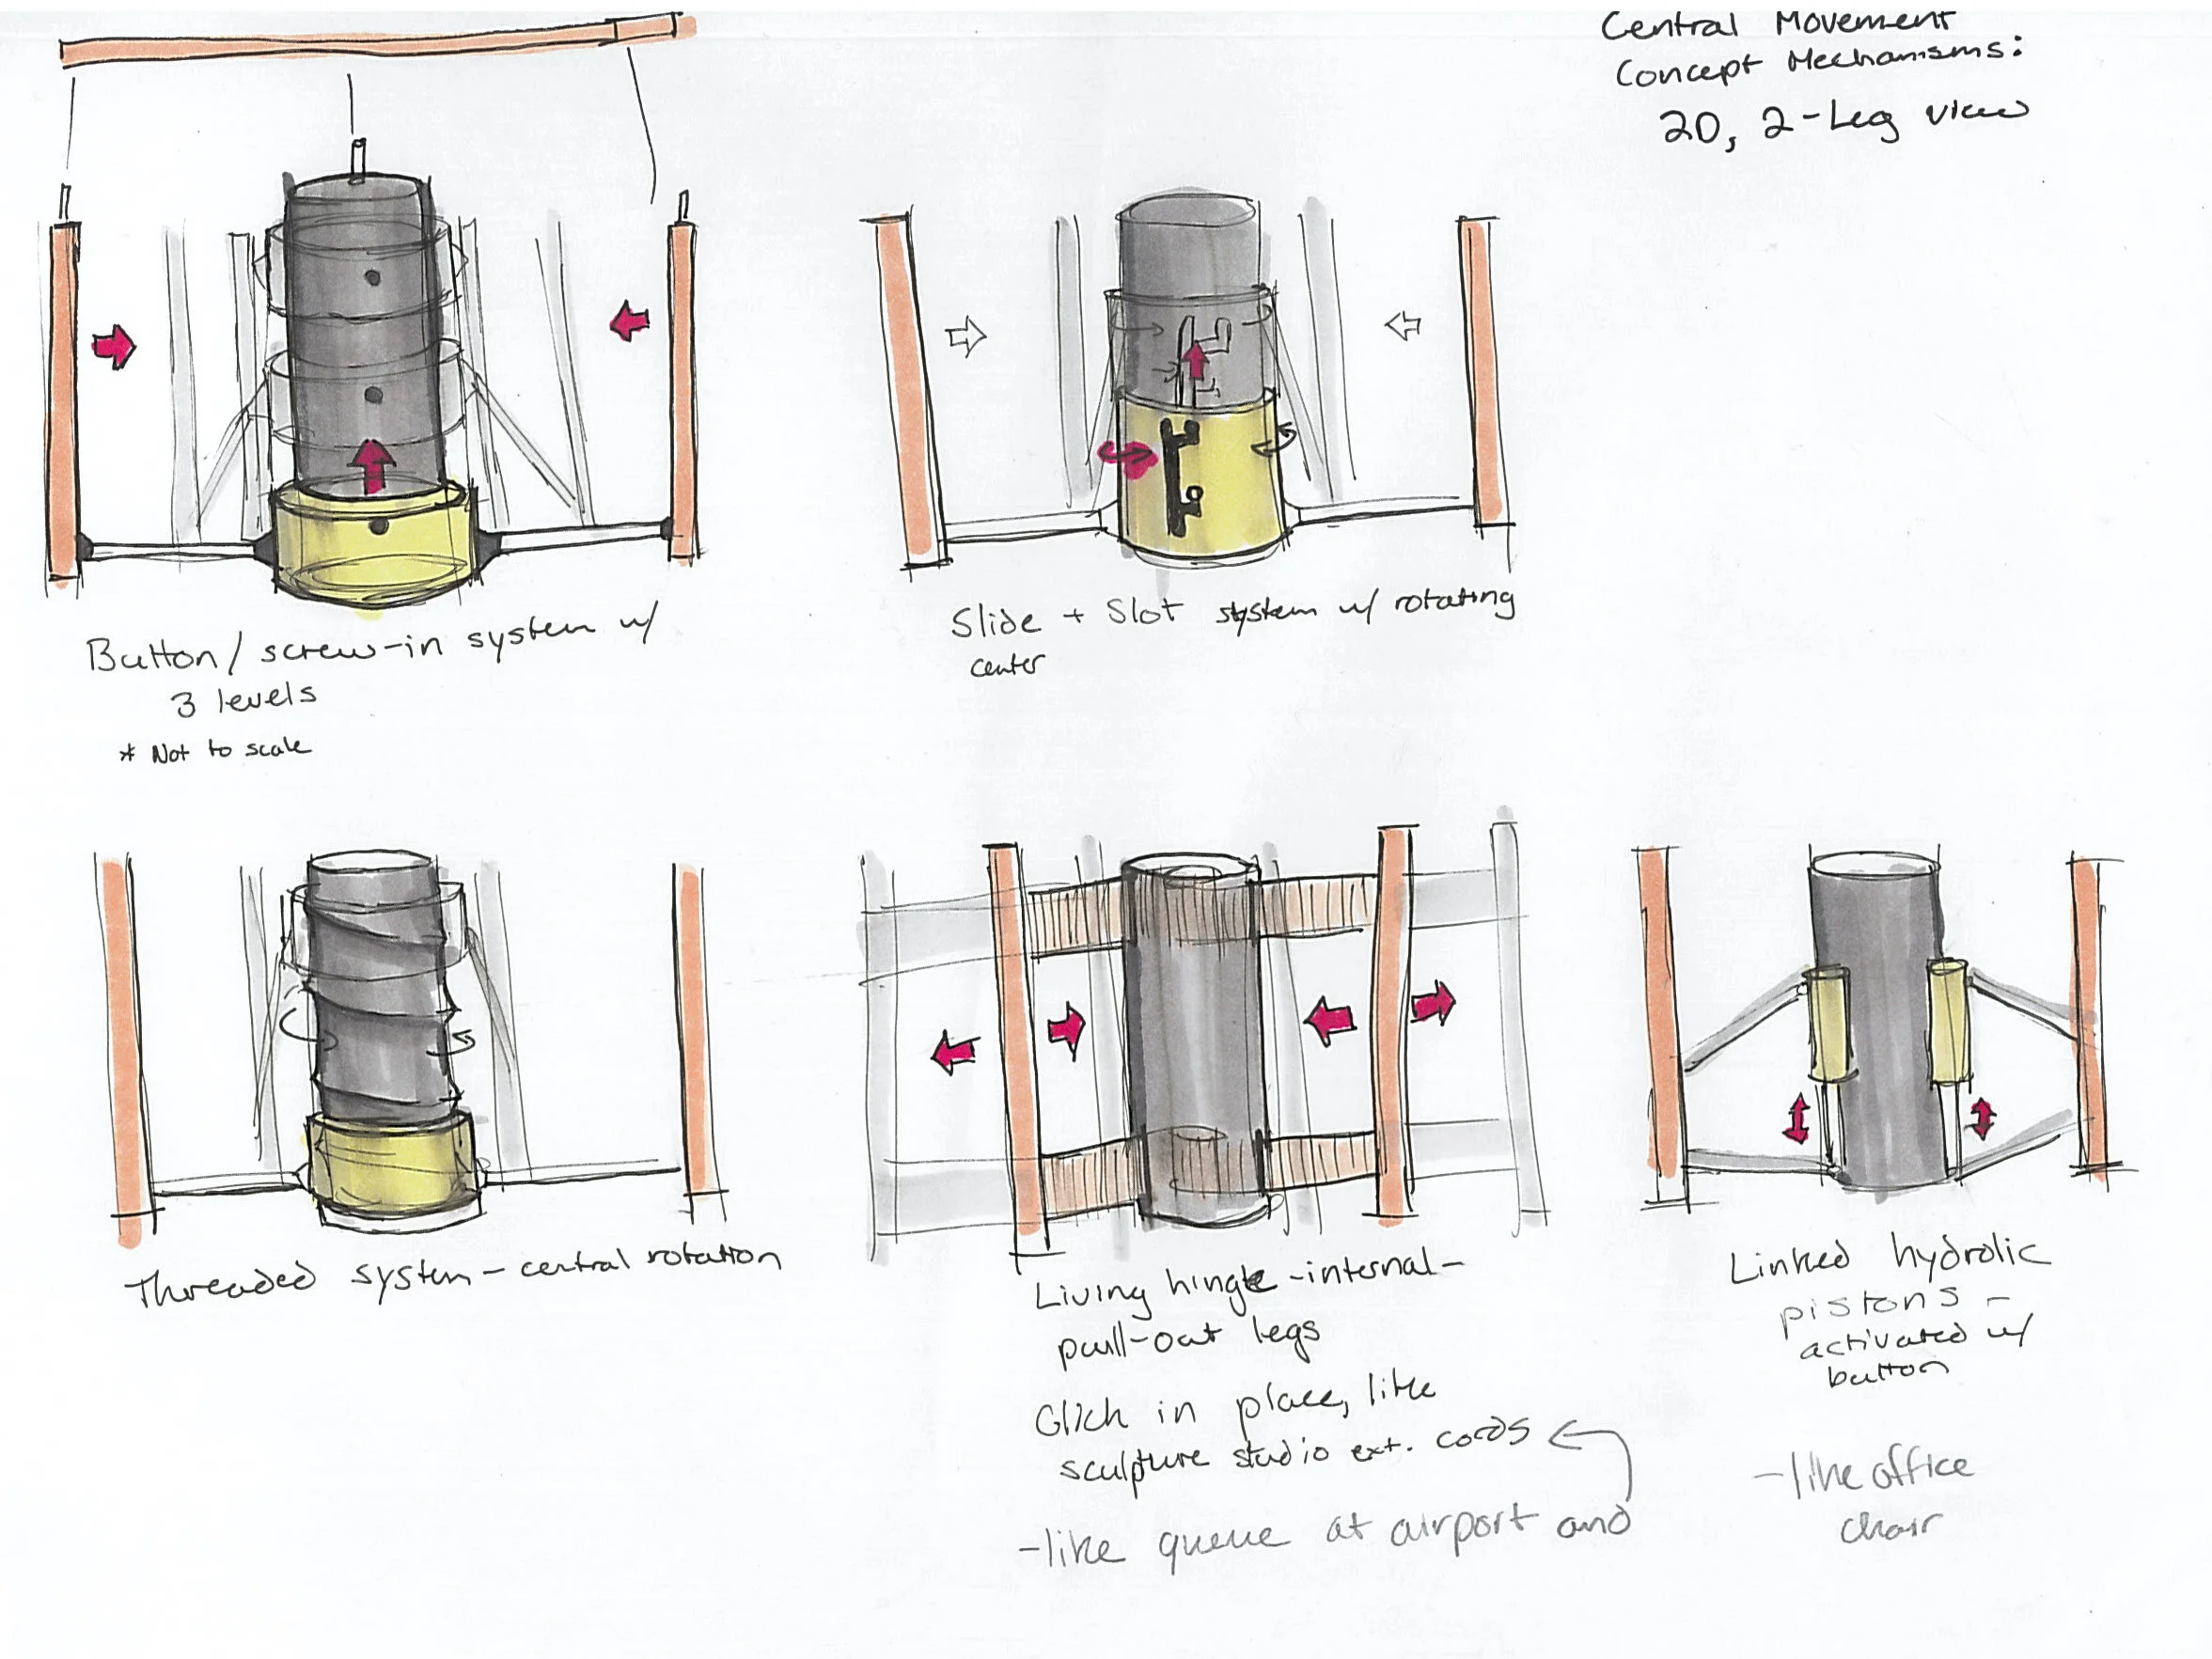 Central Movement
Concept Mechanisms:
2D, 2-Leg view
Button/screw-in system w/
3 levels
* Not to scale
Slide + Slot system w/ rotating
center
Threaded system - central rotation
Living hinge - internal -
pull-out legs
Click in place, like
sculpture studio ext. cords
- like queue at airport and
Linked hydrolic
pistons -
activated w/
button
- like office
chair